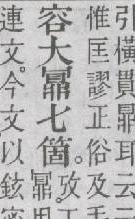 引橫貫鼏耳云
惟匡謬正俗及毛
容大鼏七箇。攷
鼏。
連文。今文以鉉